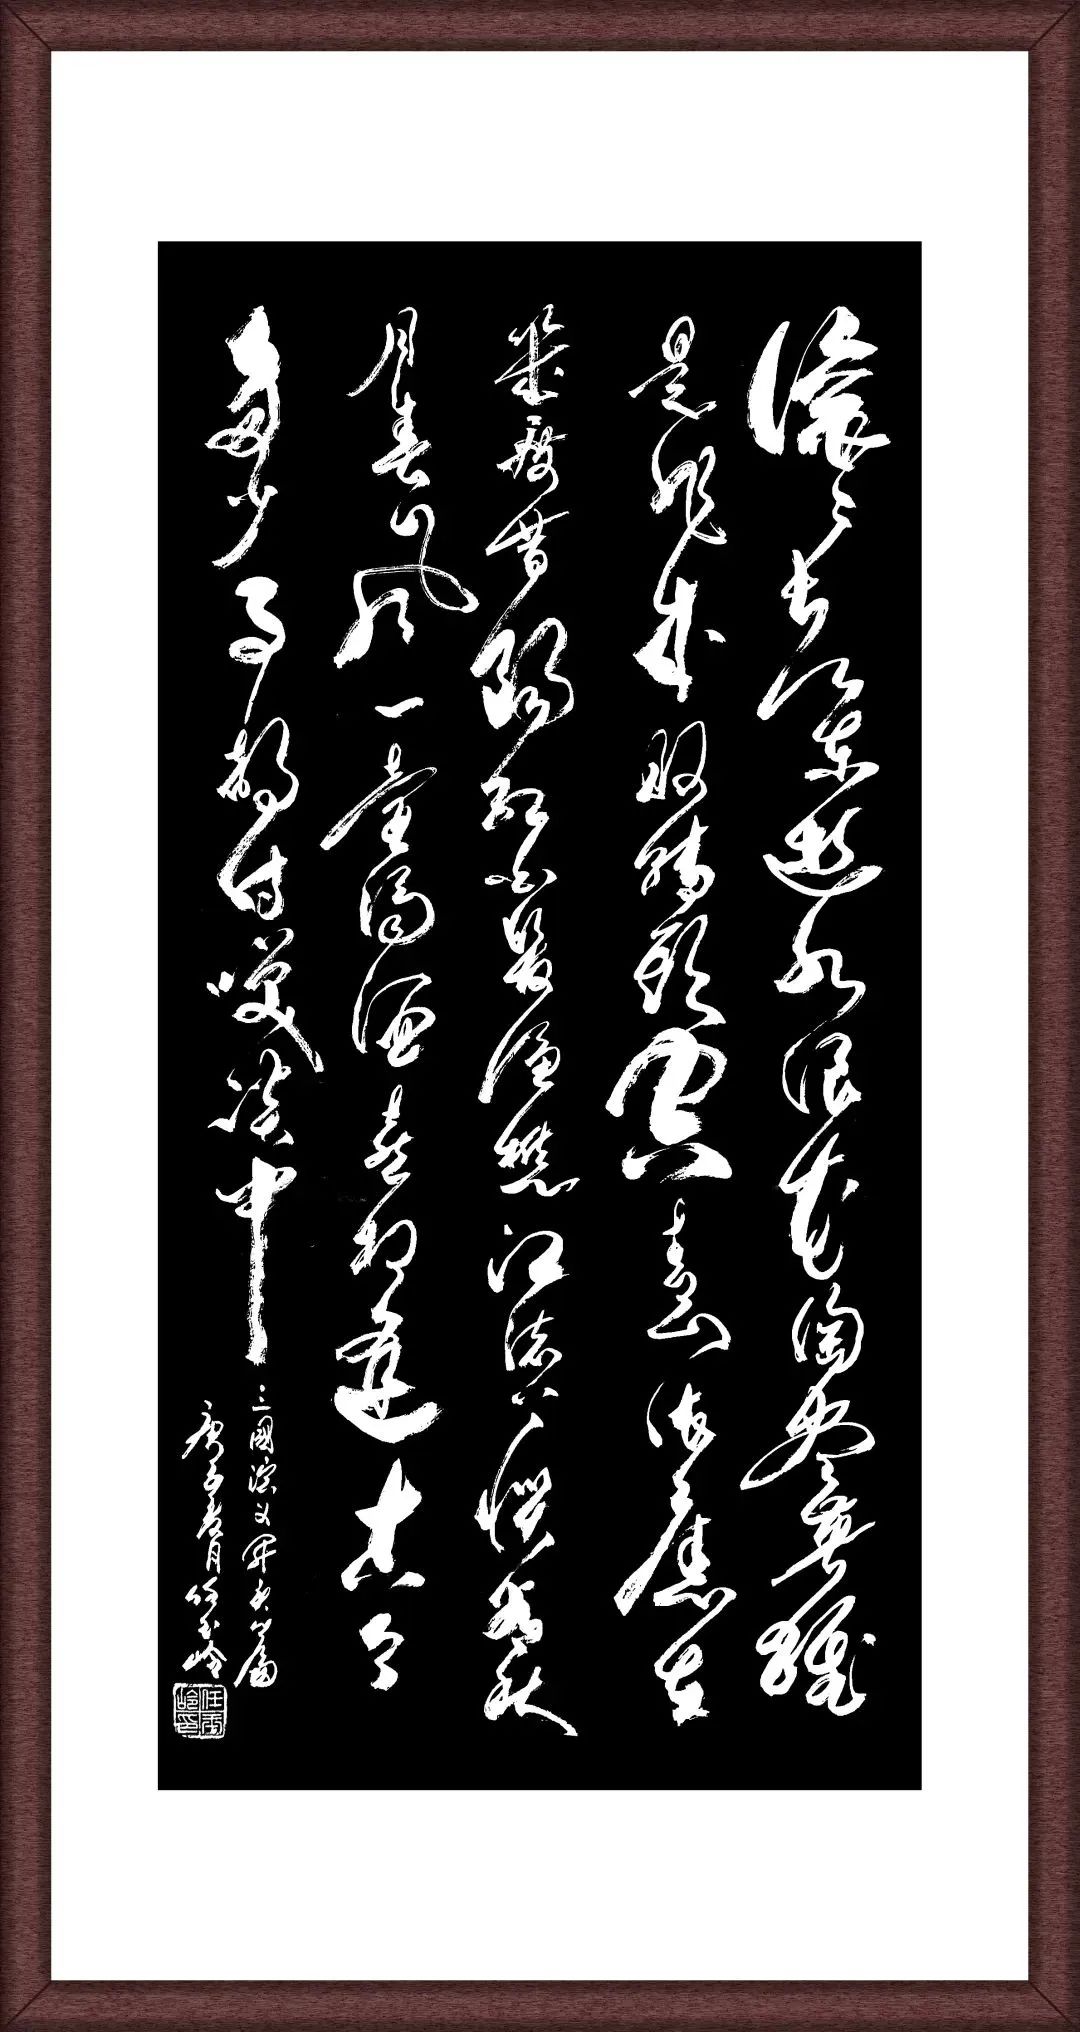 滚滚长江东逝水浪花淘尽英雄
是非成败转头空青山依旧在
幾度昔陽红白髮渔樵江渚上惯看秋
月春风一壶浊酒喜相逢古今
多少事都付笑谈中
三國演义開卷篇
庚子春月任玉岭
任玉岭印